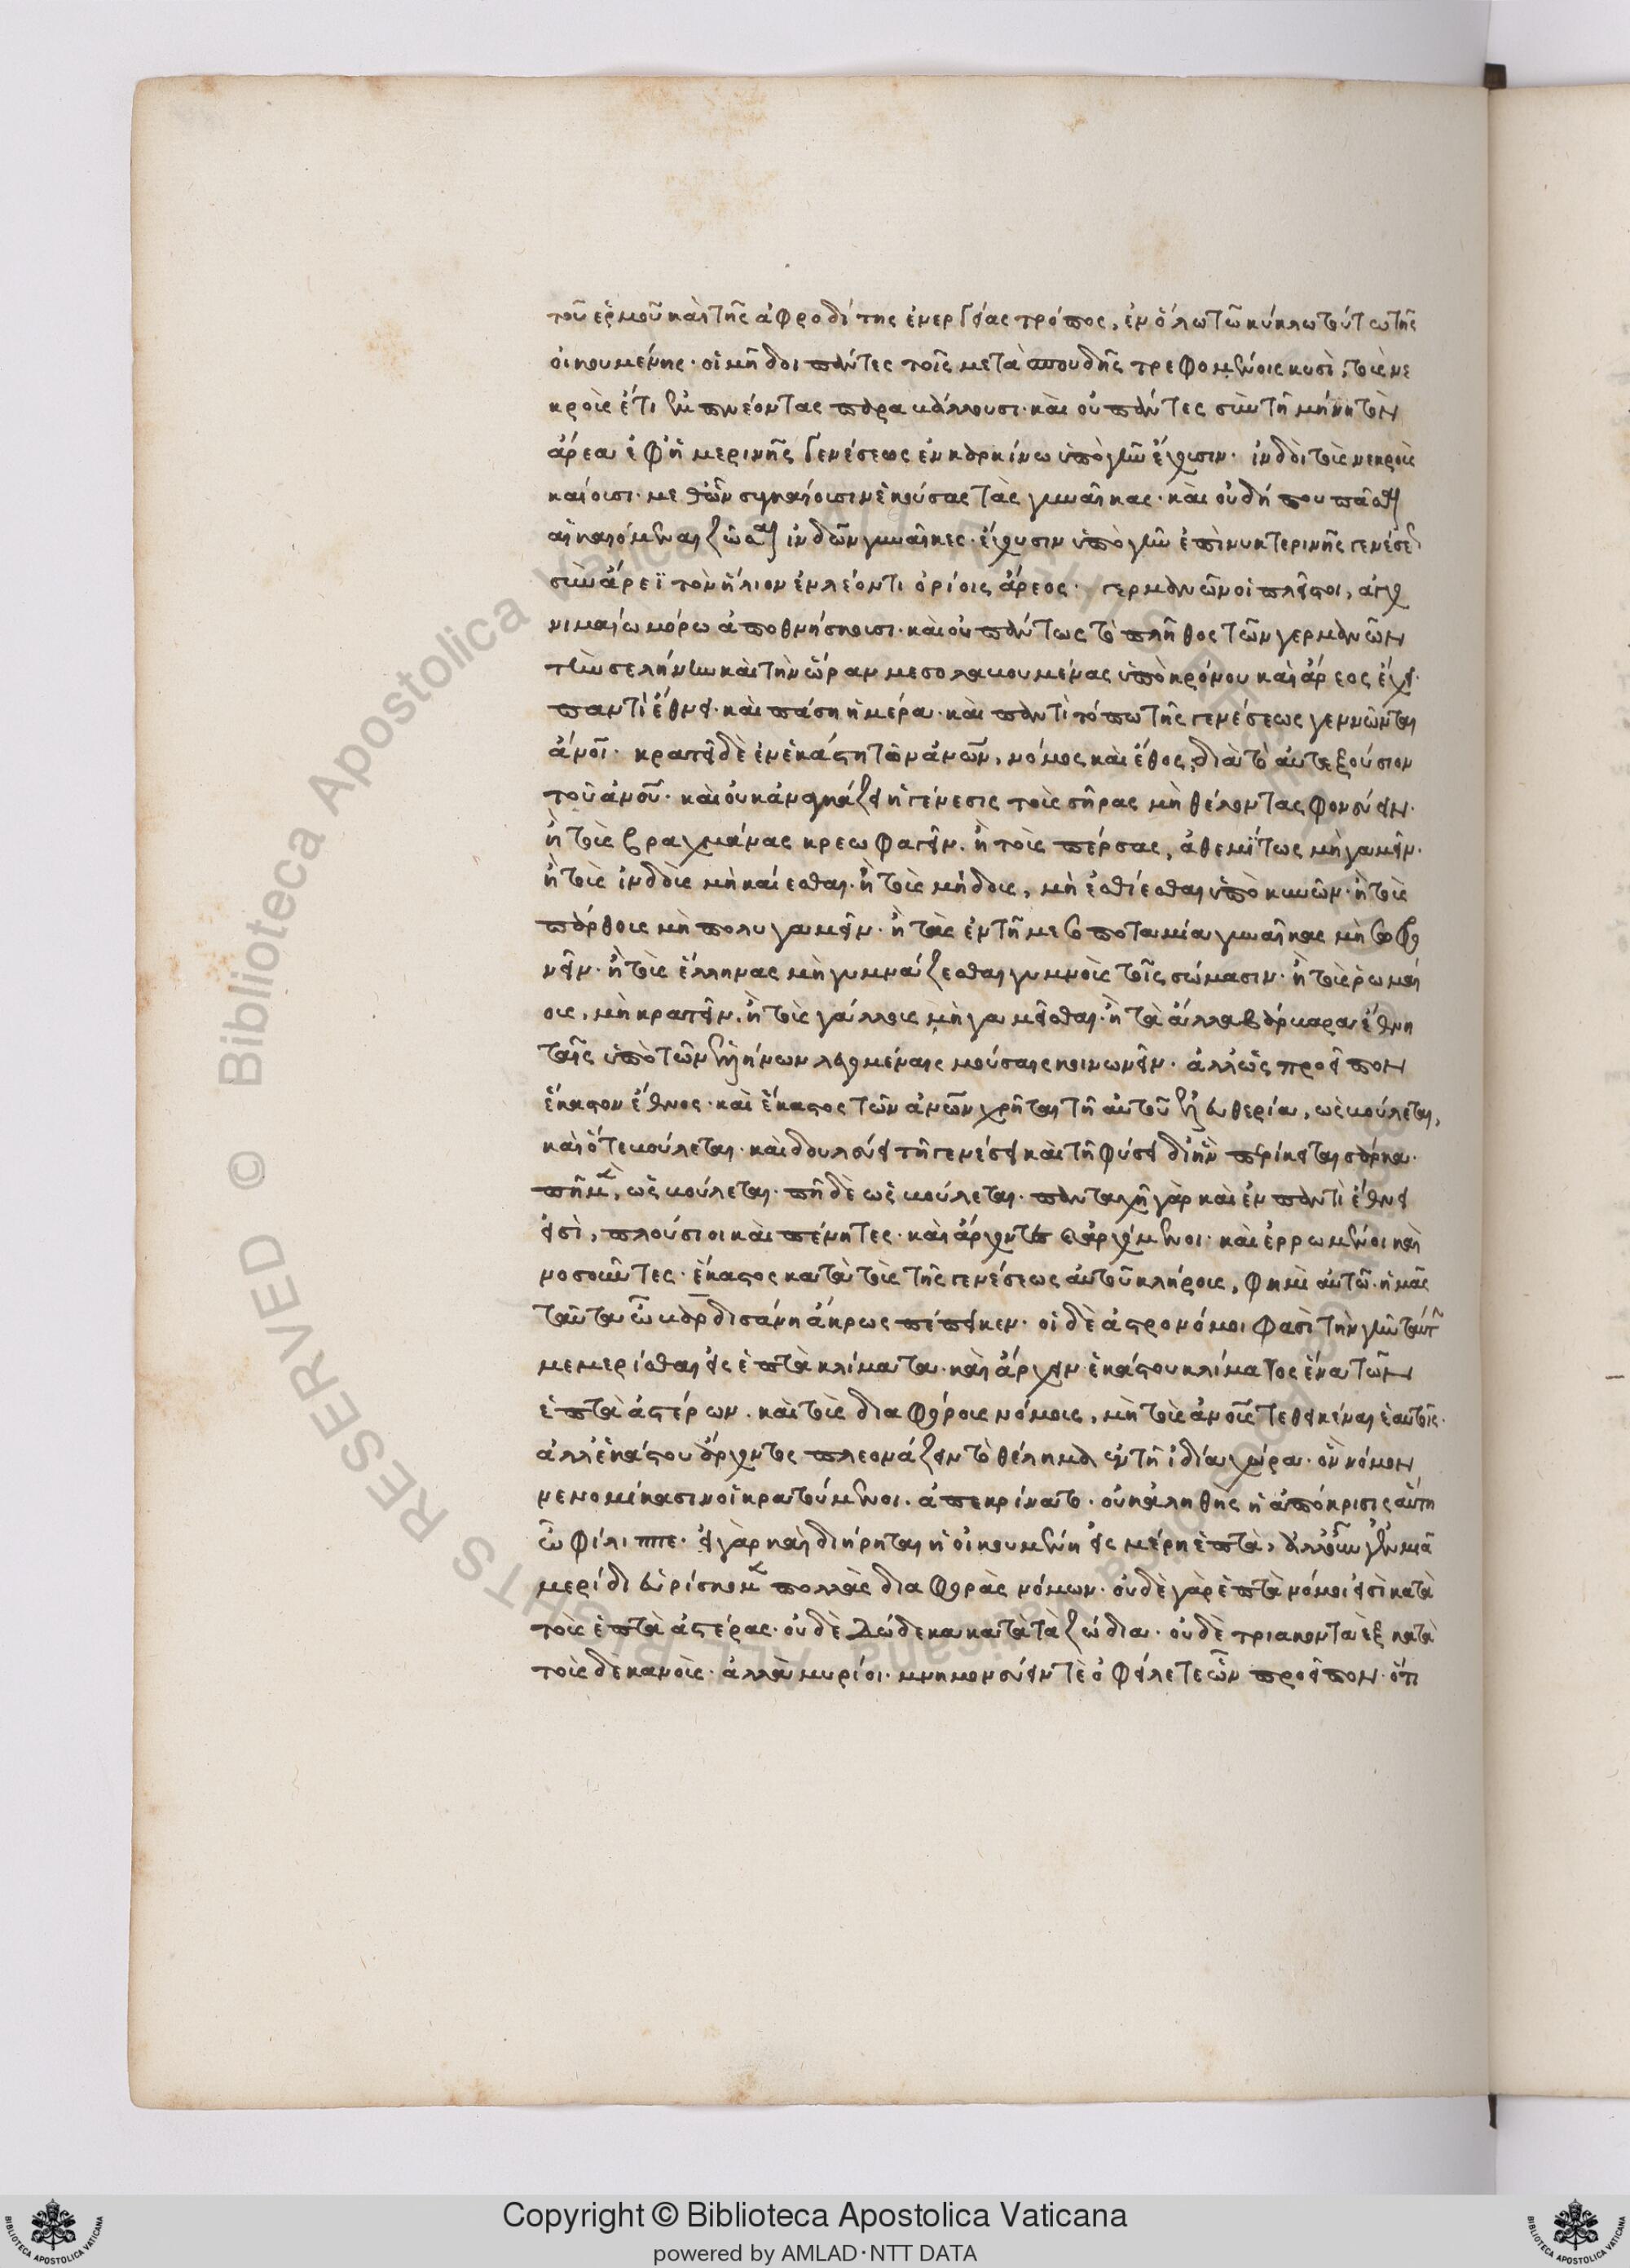 τοῦ ἑρμοῦ καὶ τῆς ἀφροδίτης ἐνεργείας τρόπος, ἐν ὅλω τῶ κύκλω τούτω τῆς
οἰκουμένης. οἱ μῆδοι πάντες τοῖς μετὰ σπουδῆς τρεφομένοις κυσὶ, τοὺς νε
κροὺς ἔτι ἐμπνέοντας παραβάλλουσι. καὶ οὐ πάντες σὺν τῆ μήνη τὸν
ἄρεα ἐφ' ἡμερινῆς γενέσεως ἐν καρκίνω ὑπὸ γῆν ἔχουσιν. ἰνδοὶ τοὺς νεκροὺς
καίουσι. μεθ' ὧν συγκαίουσιν ἑκούσας τὰς γυναῖκας. καὶ οὐδήπου πᾶσαι
αἱ καιόμεναι ζῶσαι ἰνδῶν γυναῖκες. ἔχουσιν ὑπὸ γῆν ἐπὶ νυκτερινῆς γενέσεως
σὺν ἄρεϊ τὸν ἥλιον ἐν λέοντι ὁρίοις ἄρεος. γερμανῶν οἱ πλεῖστοι, ἀγχο
νιμαίω μόρω ἀποθνήσκουσι. καὶ οὐ πάντως τὸ πλῆθος τῶν γερμανῶν
τὴν σελήνην καὶ τὴν ὥραν μεσολαβουμένας ὑπὸ κρόνου καὶ ἄρεος ἔχει.
παντὶ ἔθνει. καὶ πάση ἡμέρα. καὶ παντὶ τόπω τῆς γενέσεως γεννῶνται
ἄνοι. κρατεῖ δὲ ἐν ἑκάστη τῶν ἀνων, νόμος καὶ ἔθος, διὰ τὸ αὐτεξούσιον
τοῦ ἀνου. καὶ οὐκ ἀναγκάζει ἡ γένεσις τοὺς σῆρας μὴ θέλοντας φονεύειν.
ἢ τοὺς βραχμάνας κρεωφαγεῖν. ἢ τοὺς πέρσας, ἀθεμίτως μὴ γαμεῖν.
ἢ τοὺς ἰνδοὺς μὴ καίεσθαι. ἢ τοὺς μήδους, μὴ ἐσθίεσθαι ὑπὸ κυνῶν. ἢ τοὺς
πάρθους μὴ πολυγαμεῖν. ἢ τὰς ἐν τῆ μεσοποταμία γυναῖκας μὴ σωφρο
νεῖν. ἢ τοὺς ἕλληνας μὴ γυμνάζεσθαι γυμνοὺς τοῖς σώμασιν. ἢ τοὺς ῥωμαί
ους, μὴ κρατεῖν. ἢ τοὺς γάλλους μὴ γαμεῖσθαι. ἢ τὰ ἄλλα βάρβαρα ἔθνη
ταῖς ὑπὸ τῶν ἑλλήνων λεγομέναις μούσαις κοινωνεῖν. ἀλλ' ὡς προεῖπον
ἕκαστον ἔθνος. καὶ ἕκαστος τῶν ἀνων χρῆται τῆ αὐτοῦ ἐλευθερία, ὡς βούλεται,
καὶ ὅτε βούλεται. καὶ δουλεύει τῆ γενέσει καὶ τῆ φύσει δι' ἣν περίκειται σάρκα.
πῆ μὲν, ὡς βούλεται. πῆ δὲ ὡς βούλεται. πανταχῆ γὰρ καὶ ἐν παντὶ ἔθνει
εἰσὶ, πλούσιοι καὶ πένητες. καὶ ἄρχοντες ἀρχόμενοι. καὶ ἐρρωμένοι καὶ
νοσοῦντες. ἕκαστος κατὰ τοὺς τῆς γενέσεως αὐτοῦ κλήρους, φημὶ αὐτῶ. ἡμᾶς
ταῦτα ὦ βαρδισάνη ἄκρως πέπεικεν. οἱ δὲ ἀστρονόμοι φασὶ τὴν γῆν ταύτην
μεμερίσθαι εἰς ἑπτὰ κλίματα. καὶ ἄρχειν ἑκάστου κλίματος ἕνα τῶν
ἑπτὰ ἀστέρων. καὶ τοὺς διαφόρους νόμους, μὴ τοὺς ἀνους τεθεικέναι ἑαυτοῖς.
ἀλλ' ἑκάστου ἄρχοντος πλεονάζειν τὸ θέλημα ἐν τῆ ἰδία χώρα. ὃν νόμον
νενομίκασιν οἱ κρατούμενοι. ἀπεκρίνατο. οὐκ ἀληθὴς ἡ ἀπόκρισις αὕτη
ὦ φίλιππε. εἰ γὰρ καὶ διήρηται ἡ οἰκουμένη εἰς μέρη ἑπτὰ, ἀλλ' οὖν γε ἐν μιᾶ
μερίδι εὑρίσκομεν πολλὰς διαφορὰς νόμων. οὐδὲ γὰρ ἑπτὰ νόμοι εἰσὶ κατὰ
τοὺς ἑπτὰ ἀστέρας. οὐδὲ δώδεκα κατὰ τὰ ζώδια. οὐδὲ τριακονταὲξ κατὰ
τοὺς δεκανοὺς. ἀλλὰ μυρίοι. μνημονεύειν τὲ ὀφείλετε ὧν προεῖπον. ὅτι
Copyright © Biblioteca Apostolica Vaticana
powered by AMLAD·NTT DATA